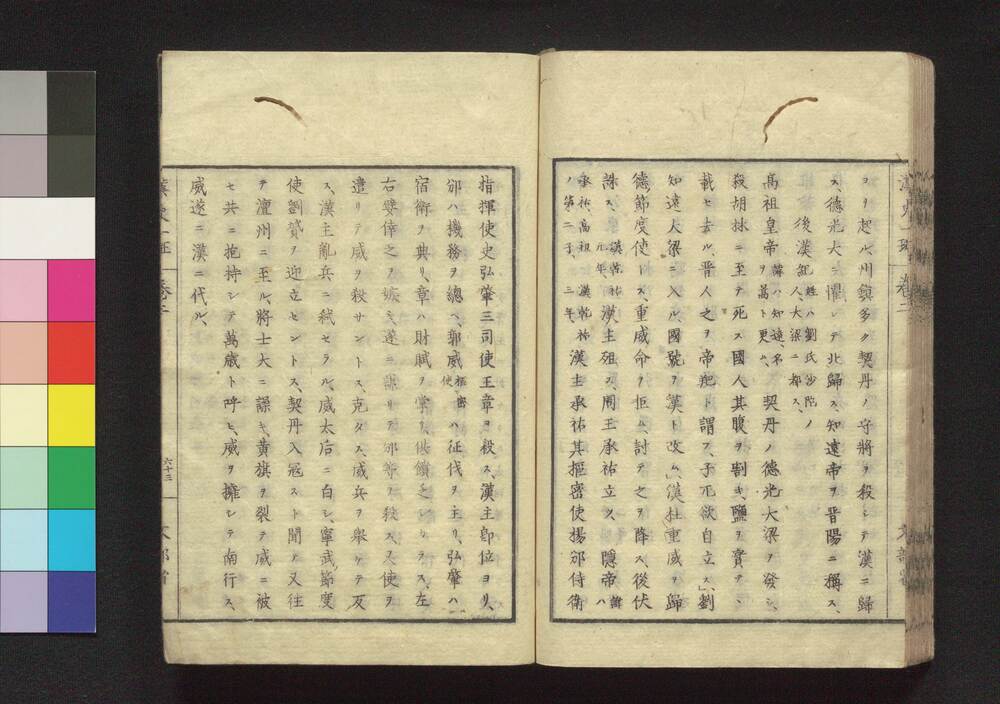 ヲ起ル、川鎮多ク契丹ノ守將ヲ殺シテ漢ニ歸
ス、德光大ニ懼レテ北歸ス、知遠帝ヲ晋陽ニ稱ス、
後漢紀 姓ハ劉氏沙陀ノ
人、大梁ニ都ス、
高祖皇帝 諱ハ知遠、名
ヲ暠ト更ム、 契丹ノ德光大梁ヲ發シ、
殺胡抹ニ至テ死ス國人其腹ヲ割キ、鹽ヲ實テ、
載セ去ル、晋人之ヲ帝羓ト謂フ、子兀欲自立ス、劉
知遠大梁ニ入ル、國號ヲ漢ト改ム、漢杜重威ヲ歸
德節度使トス、重威命ヲ拒ム、討テ之ヲ降ス、後伏
誅ス、 漢乾祐
元年、 漢主殂ス、周王承祐立ツ、 隱帝 諱ハ
承祐、高祖
ノ第二子、 漢乾祐
三年、 漢主承祐其樞密使揚邠侍衛
指揮使史弘肇三司使王章ヲ殺ス、漢主卽位ヨリ、
邠ハ機務ヲ總ヘ、郭威 樞密
使 ハ征伐ヲ主リ、弘肇ハ
宿衛ヲ典リ、章ハ財賦ヲ掌リ、供饋乏シカラス、左
右嬖倖之ヲ嫉ミ、遂ニ譖リテ邠等ヲ殺ス、又使ヲ
遣リテ威ヲ殺サントス、克タス、威兵ヲ舉ケテ反
ス、漢主亂兵ニ弑セラル、威太后ニ白シ、寧武節度
使劉贇ヲ迎立セントス、契丹入寇スト聞テ又往
テ澶州ニ至ル、將士大ニ譟キ、黄旗ヲ裂テ威ニ被
セ共ニ抱持シテ萬歲ト呼ヒ、威ヲ擁シテ南行ス、
威遂ニ漢ニ代ル、
六十三
文部省